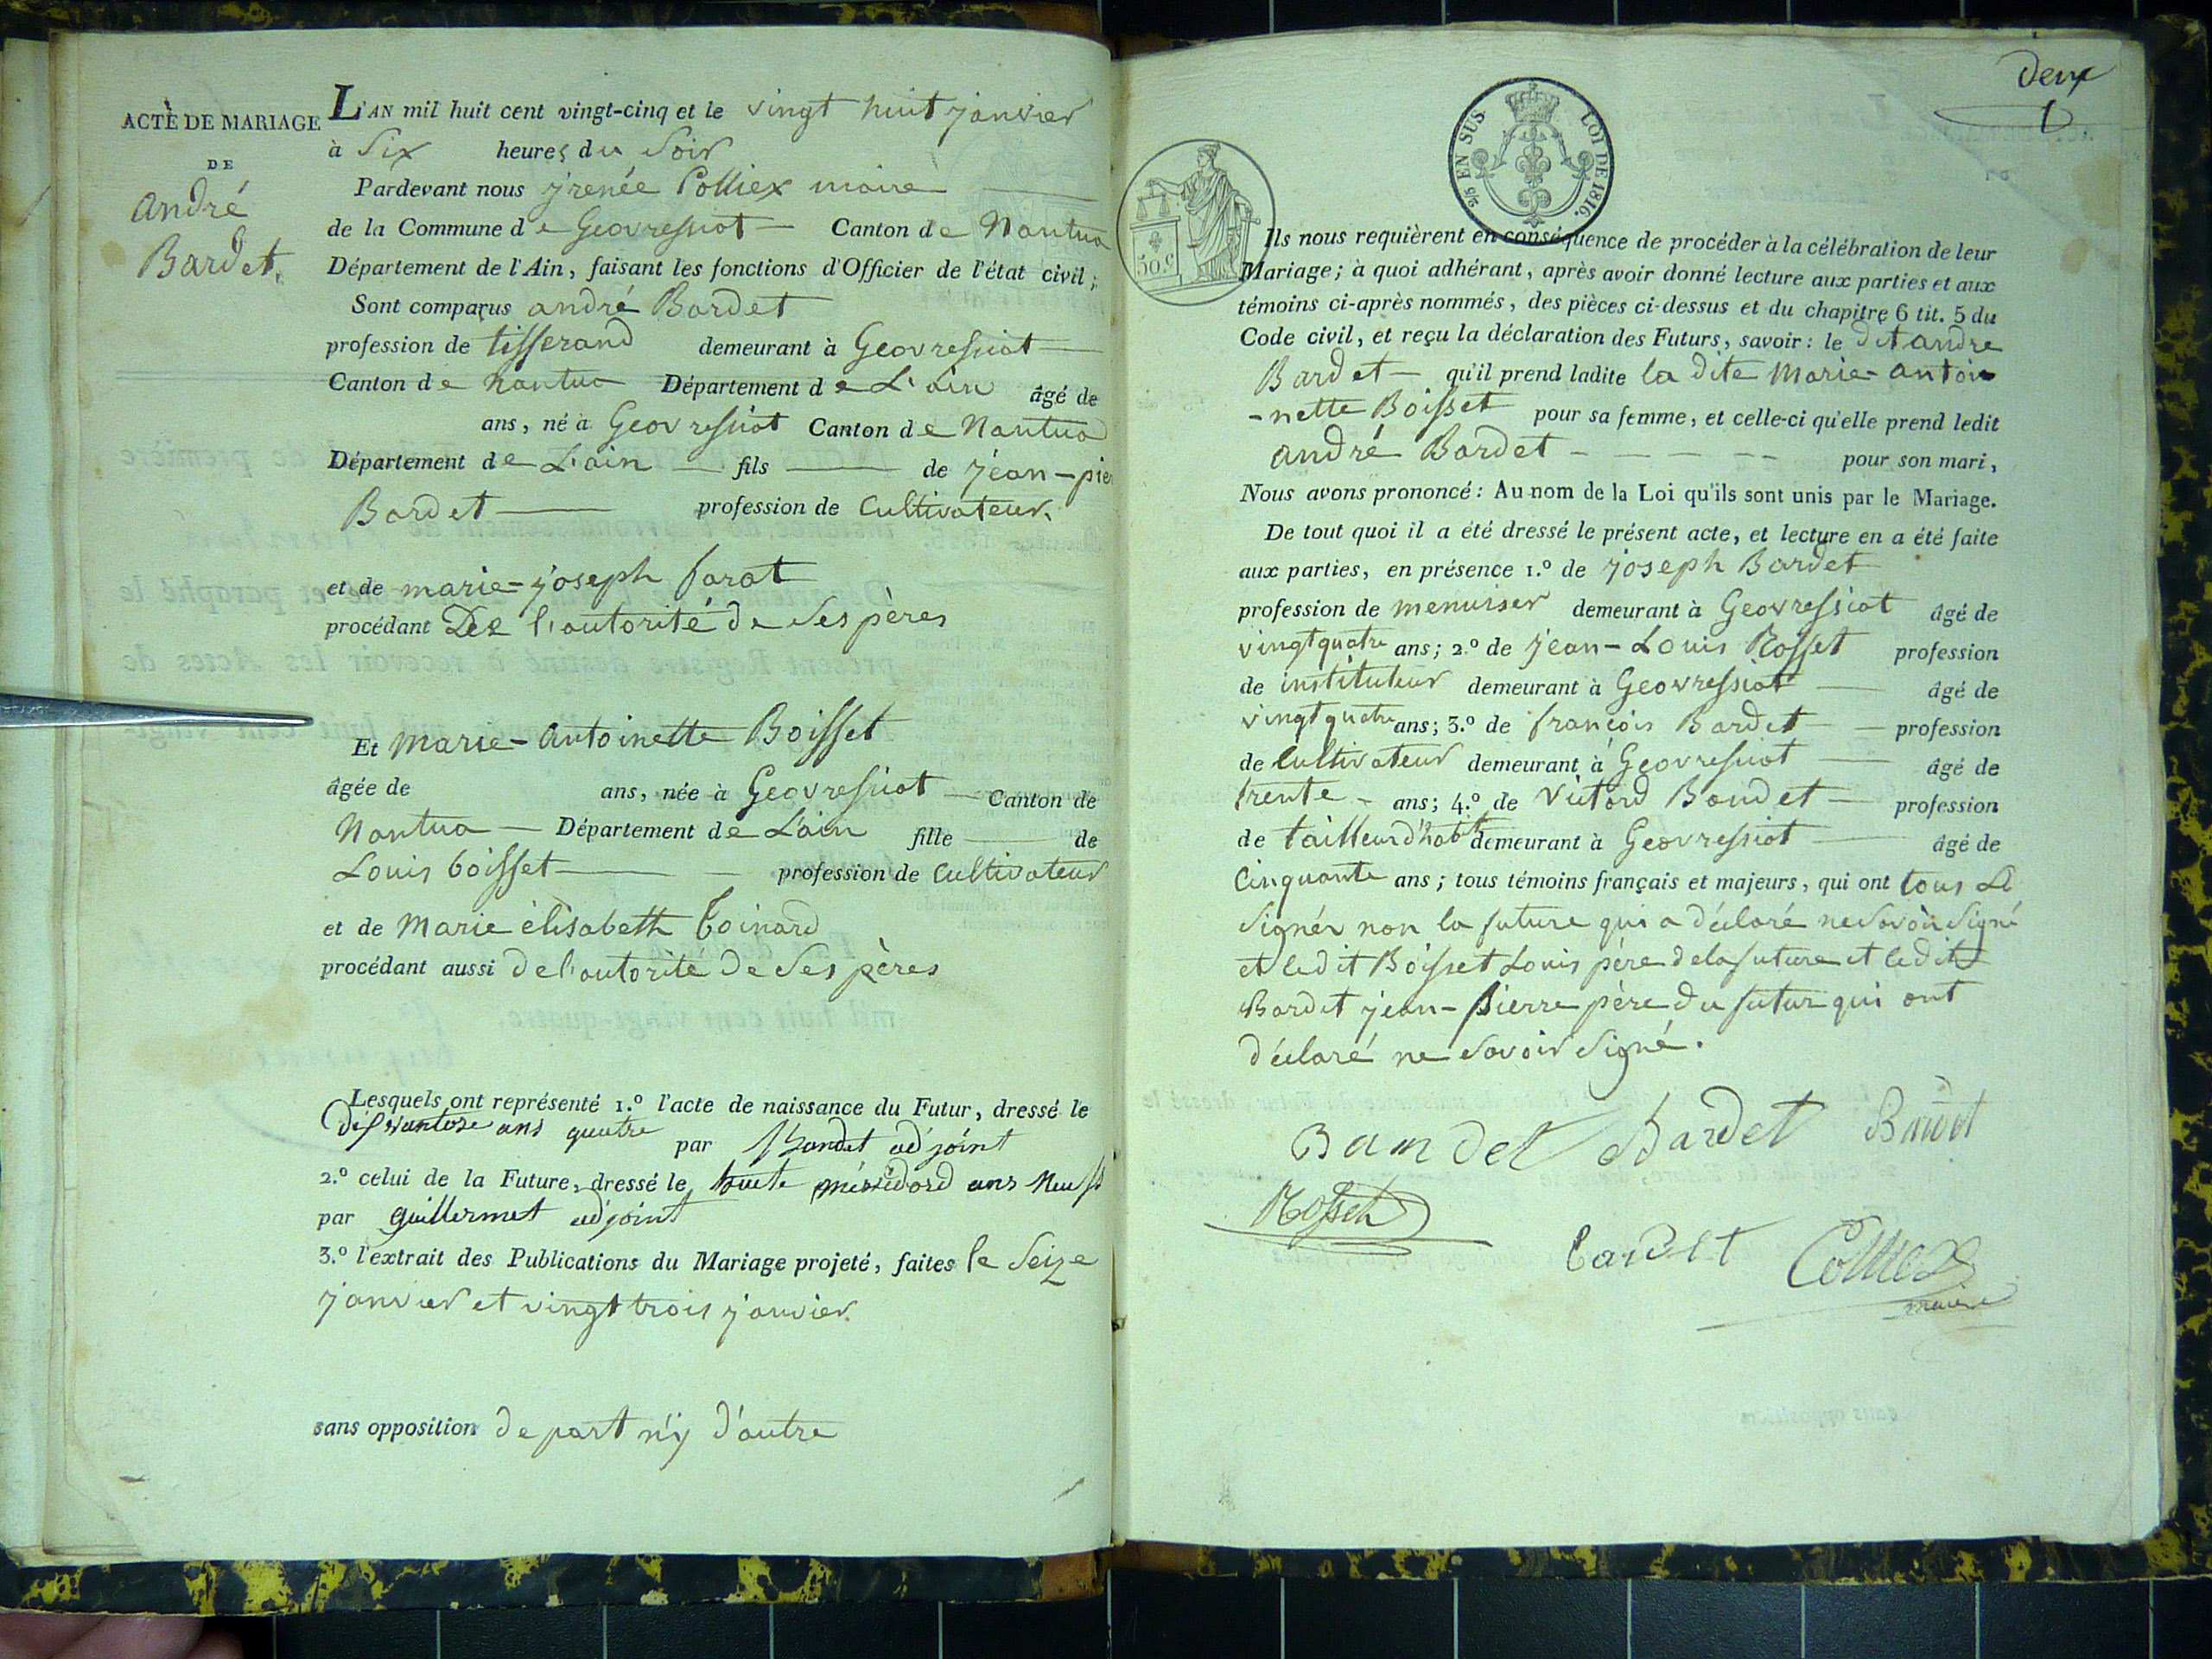 ACTE DE MARIAGE
DE
andré
Bardet.
L'AN mil huit cent vingt-cinq et le vingt huit janvier
à Six heures du Soir
Pardevant nous jrenée Colliex maire
de la Commune de Geovressiat Canton de Nantua
Département de l'Ain, faisant les fonctions d'Officier de l'état civil;
Sont comparus andré Bardet
profession de tisserand demeurant à Geovressiat
Canton de Nantua Département de L'ain âgé de
ans, né à Geovressiat Canton de Nantua
Département de L'ain fils de jean-pie
Bardet profession de Cultivateur.
et de marie-joseph
procédant De l'autorité de Ses pères
Et Marie-Antoinette Boisset
âgée de ans, née à Geovressiat Canton de
Nantua Département de L'ain fille de
Louis boisset profession de Cultivateur
et de Marie élisabeth
procédant aussi de l'autorité de Ses pères
Lesquels ont représenté 1.º l'acte de naissance du Futur, dressé le
ans quatre par adjoint
2.º celui de la Future, dressé le ans neuf
par guillermet adjoint
3.º l'extrait des Publications du Mariage projeté, faites le Seize
janvier et vingt trois janvier.
sans opposition de part n'y d'autre
deux
2/5 EN SUS LOI DE 1816.
50.c
Ils nous requièrent en conséquence de procéder à la célébration de leur
Mariage; à quoi adhérant, après avoir donné lecture aux parties et aux
témoins ci-après nommés, des pièces ci-dessus et du chapitre 6 tit. 5 du
Code civil, et reçu la déclaration des Futurs, savoir: le dit andre
Bardet qu'il prend ladite la dite Marie-antoi
-nette Boisset pour sa femme, et celle-ci qu'elle prend ledit
andré Bardet pour son mari,
Nous avons prononcé: Au nom de la Loi qu'ils sont unis par le Mariage.
De tout quoi il a été dressé le présent acte, et lecture en a été faite
aux parties, en présence 1.º de joseph Bardet
profession de menuiser demeurant à Geovressiat âgé de
vingt quatre ans; 2.º de jean-Louis Rosset profession
de instituteur demeurant à Geovressiat âgé de
vingt quatre ans; 3.º de françois Bardet profession
de Cultivateur demeurant à Geovressiat âgé de
trente ans; 4.º de Victord Bondet profession
de tailleur d'habt demeurant à Geovressiat âgé de
Cinquante ans; tous témoins français et majeurs, qui ont tous
Signér non la future qui a déclaré ne Savoir Signé
et ledit Boisset Louis père de la future et ledit
Bardet jean-pierre père du futur qui ont
déclaré ne Savoir Signé.
Bardet Bardet
Rosset
bardet Colliex
maire